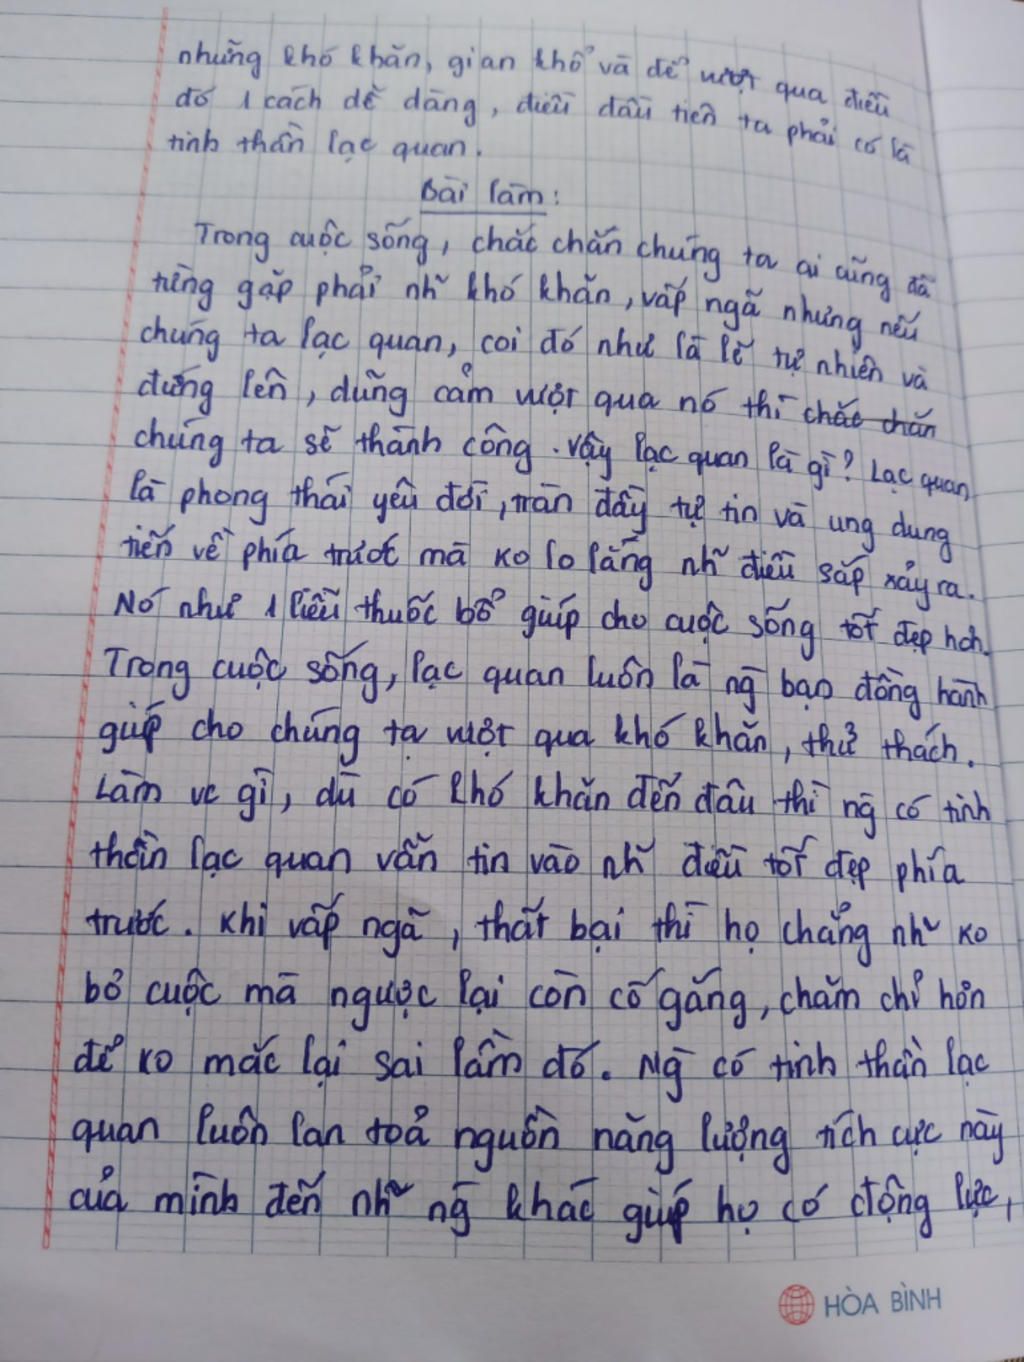 những khó khăn, gian khổ và để vượt qua điều
đó 1 cách dễ dàng, điều đầu tiên ta phải có là
tinh thần lạc quan.
Bài làm:
Trong cuộc sống, chắc chắn chúng ta ai cũng đã
từng gặp phải nh~ khó khăn, vấp ngã nhưng nếu
chúng ta lạc quan, coi đó như là lẽ tự nhiên và
đứng lên, dũng cảm vượt qua nó thì chắc chắn
chúng ta sẽ thành công. Vậy lạc quan là gì? Lạc quan
là phong thái yêu đời, tràn đầy tự tin và ung dung
tiến về phía trước mà ko lo lắng nh~ điều sắp xảy ra.
Nó như 1 liều thuốc bổ giúp cho cuộc sống tốt đẹp hơn.
Trong cuộc sống, lạc quan luôn là ng̀ bạn đồng hành
giúp cho chúng ta vượt qua khó khăn, thử thách.
Làm vc gì, dù có khó khăn đến đâu thì ng̀ có tinh
thần lạc quan vẫn tin vào nh~ điều tốt đẹp phía
trước. Khi vấp ngã, thất bại thì họ chẳng nh~ ko
bỏ cuộc mà ngược lại còn cố gắng, chăm chỉ hơn
để ko mắc lại sai lầm đó. Ng̀ có tinh thần lạc
quan luôn lan toả nguồn năng lượng tích cực này
của mình đến nh~ ng̀ khác giúp họ có động lực,
HÒA BÌNH